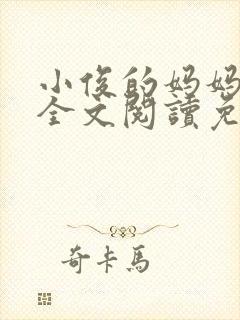 小俊的妈妈
全文閱讀免
奇卡馬